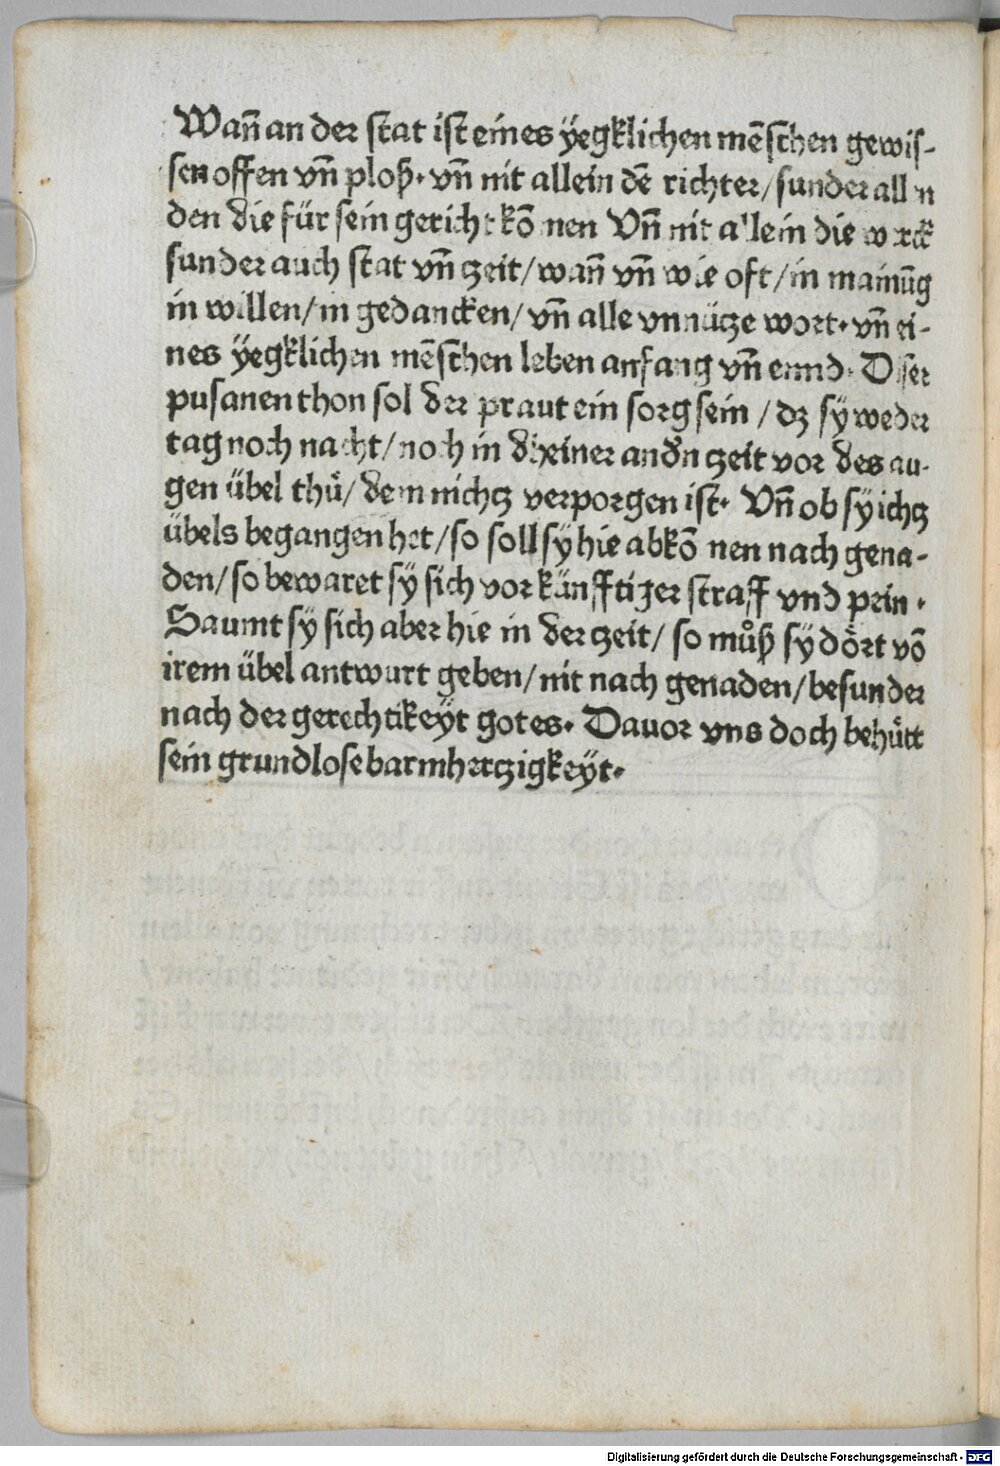 Wañ an der stat ist eines ÿegklichen mẽschen gewis-
sen offen vñ ploß· vñ nit allein dẽ richter/ sunder allen
den die für sein gericht kõmen Vñ nit allein die werck
sunder auch stat vñ zeit/ wañ vñ wie oft/ in mainũg
in willen/ in gedancken/ vñ alle vnnütze wort· vñ ei-
nes ÿegklichen mẽschen leben anfang vñ ennd· Diser
pusanen thon sol der praut ein sorg sein / dz sÿ weder
tag noch nacht/ noch in dheiner andñ zeit vor des au-
gen übel thuͤ/ dem nichtz verporgen ist· Vñ ob sÿ ichtz
übels begangen het/ so soll sÿ hie abkõmen nach gena-
den/ so bewaret sÿ sich vor künfftiger straff vnd pein·
Saumt sÿ sich aber hie in der zeit/ so muͦß sÿ doͤrt võ
irem übel antwurt geben/ nit nach genaden/ besunder
nach der gerechtikeÿt gotes· Dauor vns doch behuͤtt
sein grundlose barmhertzigkeÿt·
Digitalisierung gefördert durch die Deutsche Forschungsgemeinschaft - DFG